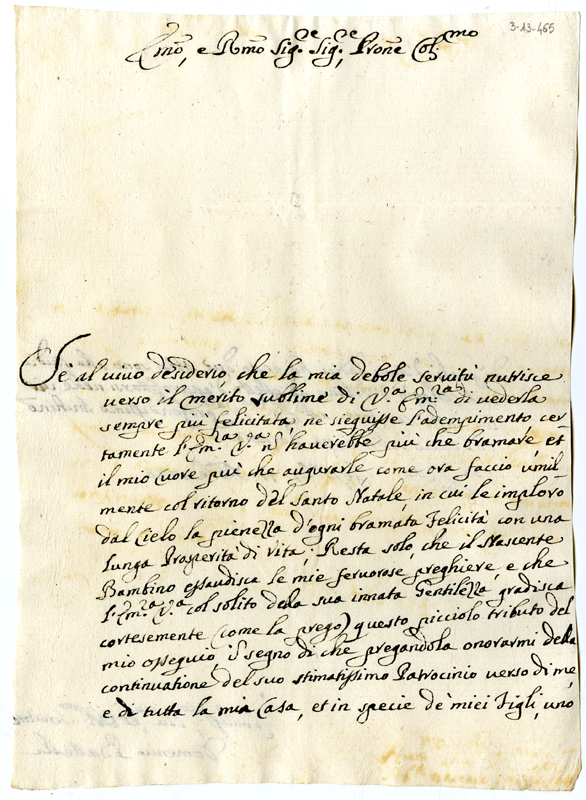 3-13-465
Emõ, e Rmõ Sig.re Sig.re, Prone Col.mo
Se al vivo desiderio, che la mia debole servitù nutrisce
verso il merito sublime di V.a Em.za di vederla
sempre più felicitata, ne sieguisse l'adempimento, cer-
tamente l'Em.za V.a nõ haverebbe più che bramare, et
il mio cuore più che augurarle come ora faccio umil-
mente col ritorno del Santo Natale, in cui le imploro
dal Cielo la pienezza d'ogni bramata Felicità con una
lunga Prosperità di vita; Resta solo, che il Nascente
Bambino essaudisca le mie fervorose preghiere, e che
l'Em.za V.a col solito della sua innata Gentilezza gradisca
cortesemente (come la prego) questo picciolo tributo del
mio ossequio, ĩ segno di che pregandola onorarmi della
continuatione del suo stimatissimo Patrocinio verso di me,
e di tutta la mia Casa, et in specie de miei Figli, uno